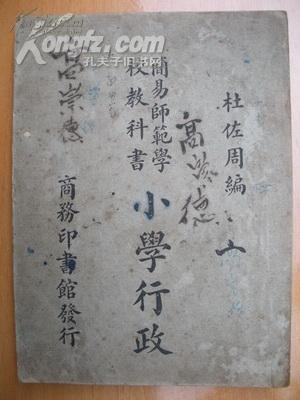 杜佐周編
簡易師範學
校教科書
小學行政
高崇德
商務印書館發行
高崇德
孔夫子旧书网